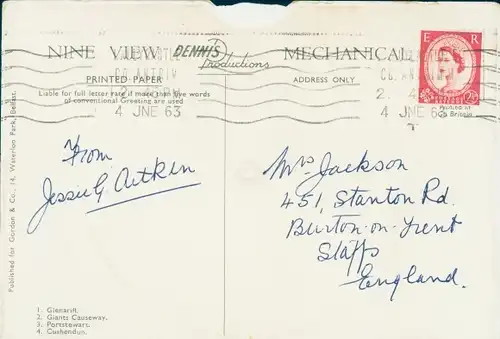 NINE VIEW DENNIS Productions MECHANICAL
PRINTED PAPER
ADDRESS ONLY
Liable for full letter rate if more than five words
of conventional Greeting are used
CO. ANTRIM
4 JNE 63
4 JNE 63
E R
2½
Printed in
Gt. Britain
From
Jessie G Aitken
Mrs Jackson
451, Stanton Rd.
Burton-on-Trent
Staffs
England.
Published for Gordon & Co., 14, Waterloo Park, Belfast.
1. Glenariff.
2. Giants Causeway.
3. Portstewart.
4. Cushendun.